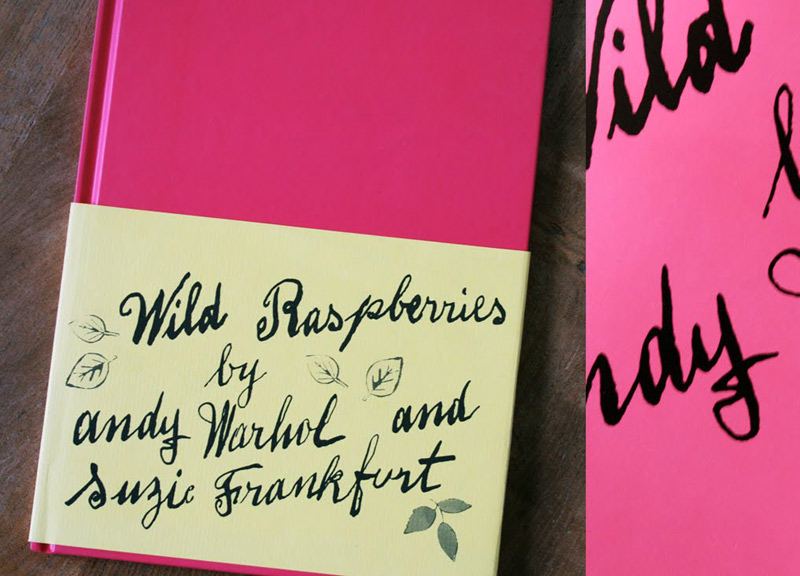 Wild Raspberries
by
andy Warhol and
Suzie Frankfurt
Wild
ndy